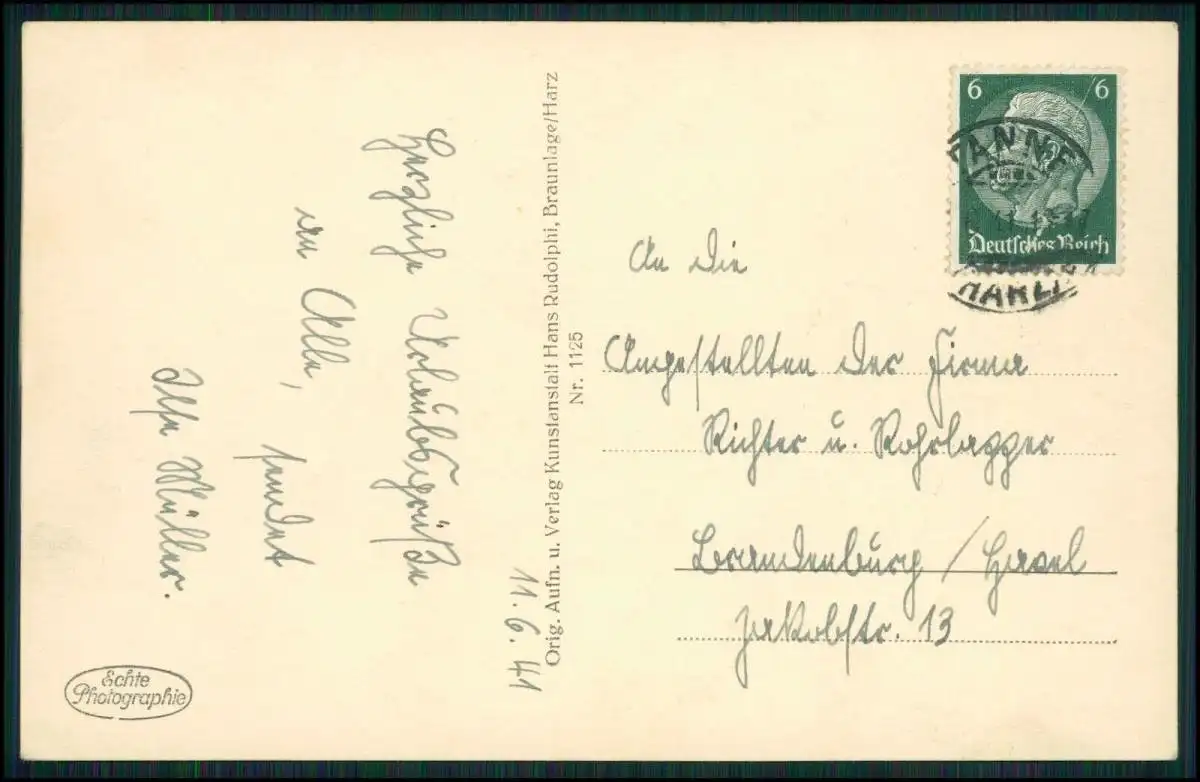 Herzliche Urlaubsgrüße
an Alle,
sendet
Ilse Müller.
11.6.41
Orig. Aufn. u. Verlag Kunstanstalt Hans Rudolphi, Braunlage/Harz
Nr. 1125
Echte
Photographie
6 6
Deutsches Reich
TANNE
HARZ
An die
Angestellten der Firma
Richter u.
Brandenburg / Havel
Jakobstr. 13